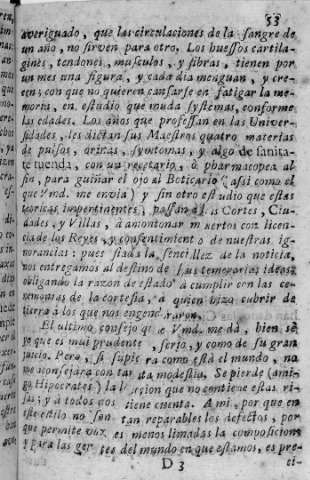 53
averiguado, que las circulaciones de la sangre de
un año, no sirven para otro, Los huessos cartila-
gines, tendones, musculos, y fibras, tienen por
un mes una figura, y cada dia menguan, y cre-
cen; con que no quieren cansarse en fatigar la me-
moria, en estudio que muda systemas, conforme
las edades. Los años que professan en las Univer-
sidades, les dictan sus Maestros quatro materias
de pulsos, orinas, symtomas, y algo de sanita-
te tuenda, con un recetario, ò pharmacopea al
fin, para guiñar el ojo al Boticario (assi como el
que Vmd. me envia) y sin otro estudio que estas
teoricas impertinentes, passan à las Cortes, Ciu-
dades, y Villas, à amontonar muertos con licen-
cia de los Reyes, y consentimiento de nuestras ig-
norancias; pues fiada la sencillez de la noticia,
nos entregamos al destino de sus temerarias ideas,
obligando la razon de estado à cumplir con las ce-
remonias de la cortesia, à quien hizo cubrir de
tierra à los que engendraron.
El ultimo consejo que Vmd. me dá, bien sé
yo que es mui prudente, serio, y como de su gran
juicio. Pero, si supiera como està el mundo, no
me aconsejara con tanta modestia. Se pierde (ami-
go Hipocrates) la leccion que no contiene estas ri-
sas; y à todos nos tiene cuenta. A mi, por que en
este estilo no son tan reparables los defectos, por
que permite voz es menos limadas la composicion;
y para las gentes del mundo en que estamos, es pre-
D 3
ci-